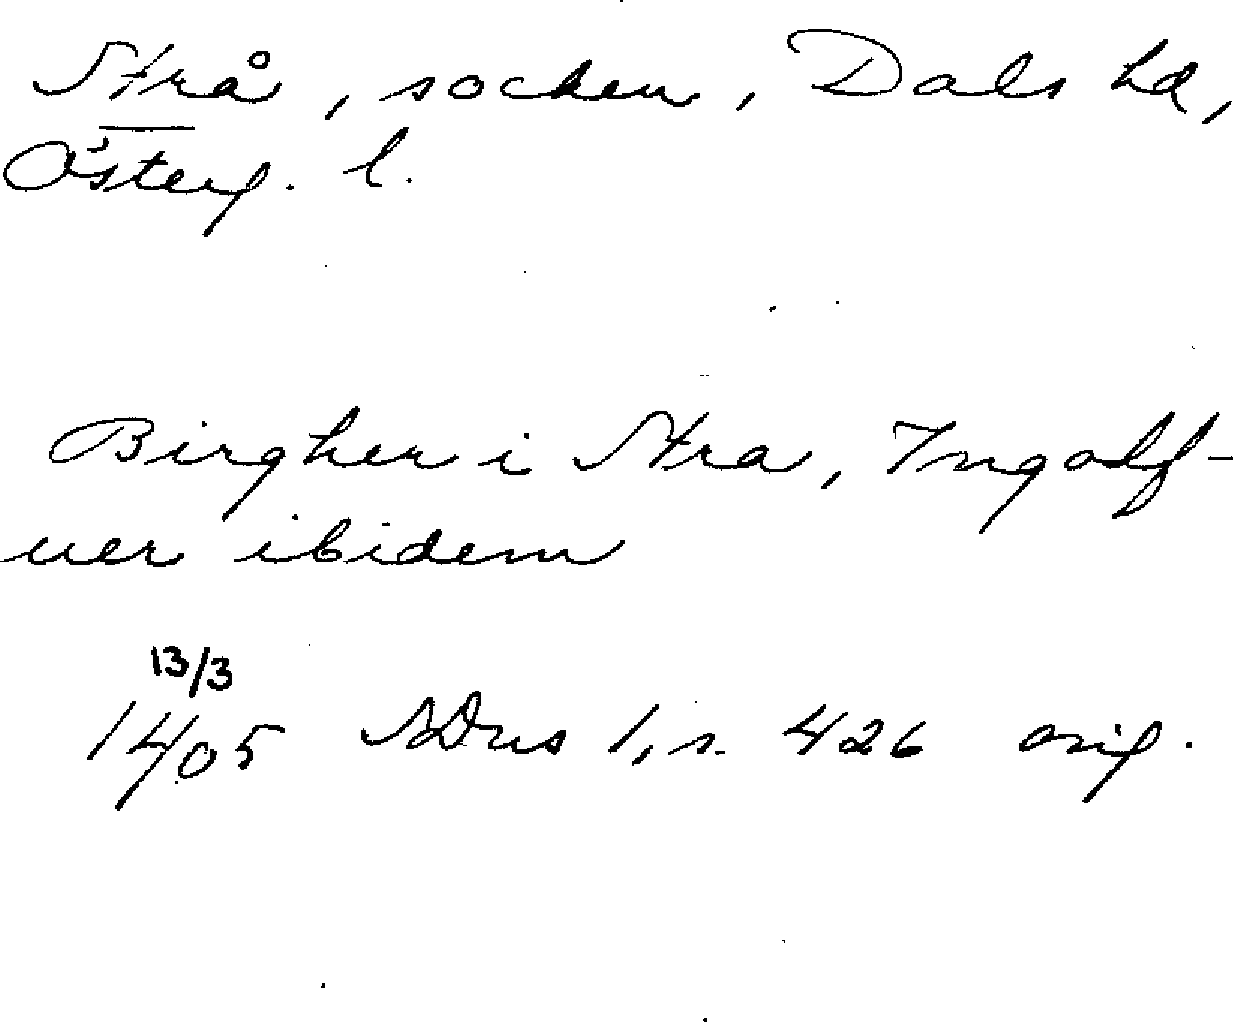 Strå, socken, Dals hd,
Österg. l.
Birgher i Stra, Ingolf-
uer ibidem
13/3
1405 SDns 1, s. 426 orig.